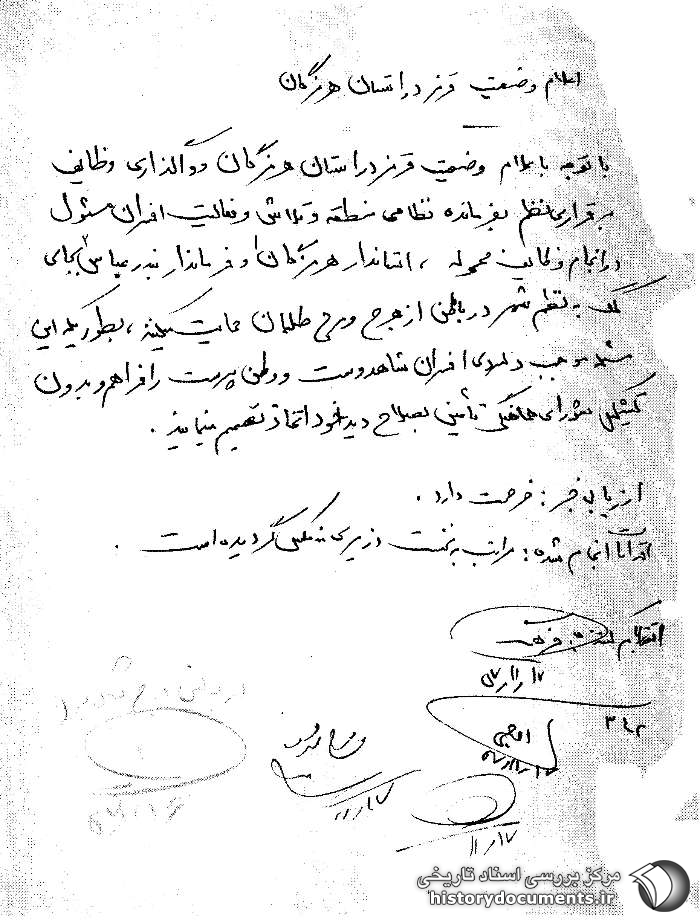 اعلام وضعیت قرمز در استان هرمزگان
با توجه باعلام وضعیت قرمز در استان هرمزگان و واگذاری وظایف
برقراری نظم بفرمانده نظامی منطقه و تلاش و فعالیت افسران مسئول
در انجام وظایف محوله ، استاندار هرمزگان و فرماندار بندرعباس بجای
کمک به نظم شهر در باطن از هرج و مرج طلبان حمایت میکنند ، بطوریکه این
موجب دلسردی افسران شاهدوست و وطن پرست را فراهم و بدون
تشکیل شورای هماهنگی تأمین بصلاح دید خود اتخاذ تصمیم مینمایند .
ارزیابی خبر : صحت دارد .
اقدامات انجام شده : مراتب به نخست وزیری منعکس گردیده است .
۱۷ر۱۱ر۵۷
۳۱۲
۱۷ر۱۱
۱۷ر۱۱
مرکز بررسی اسناد تاریخی
historydocuments.ir